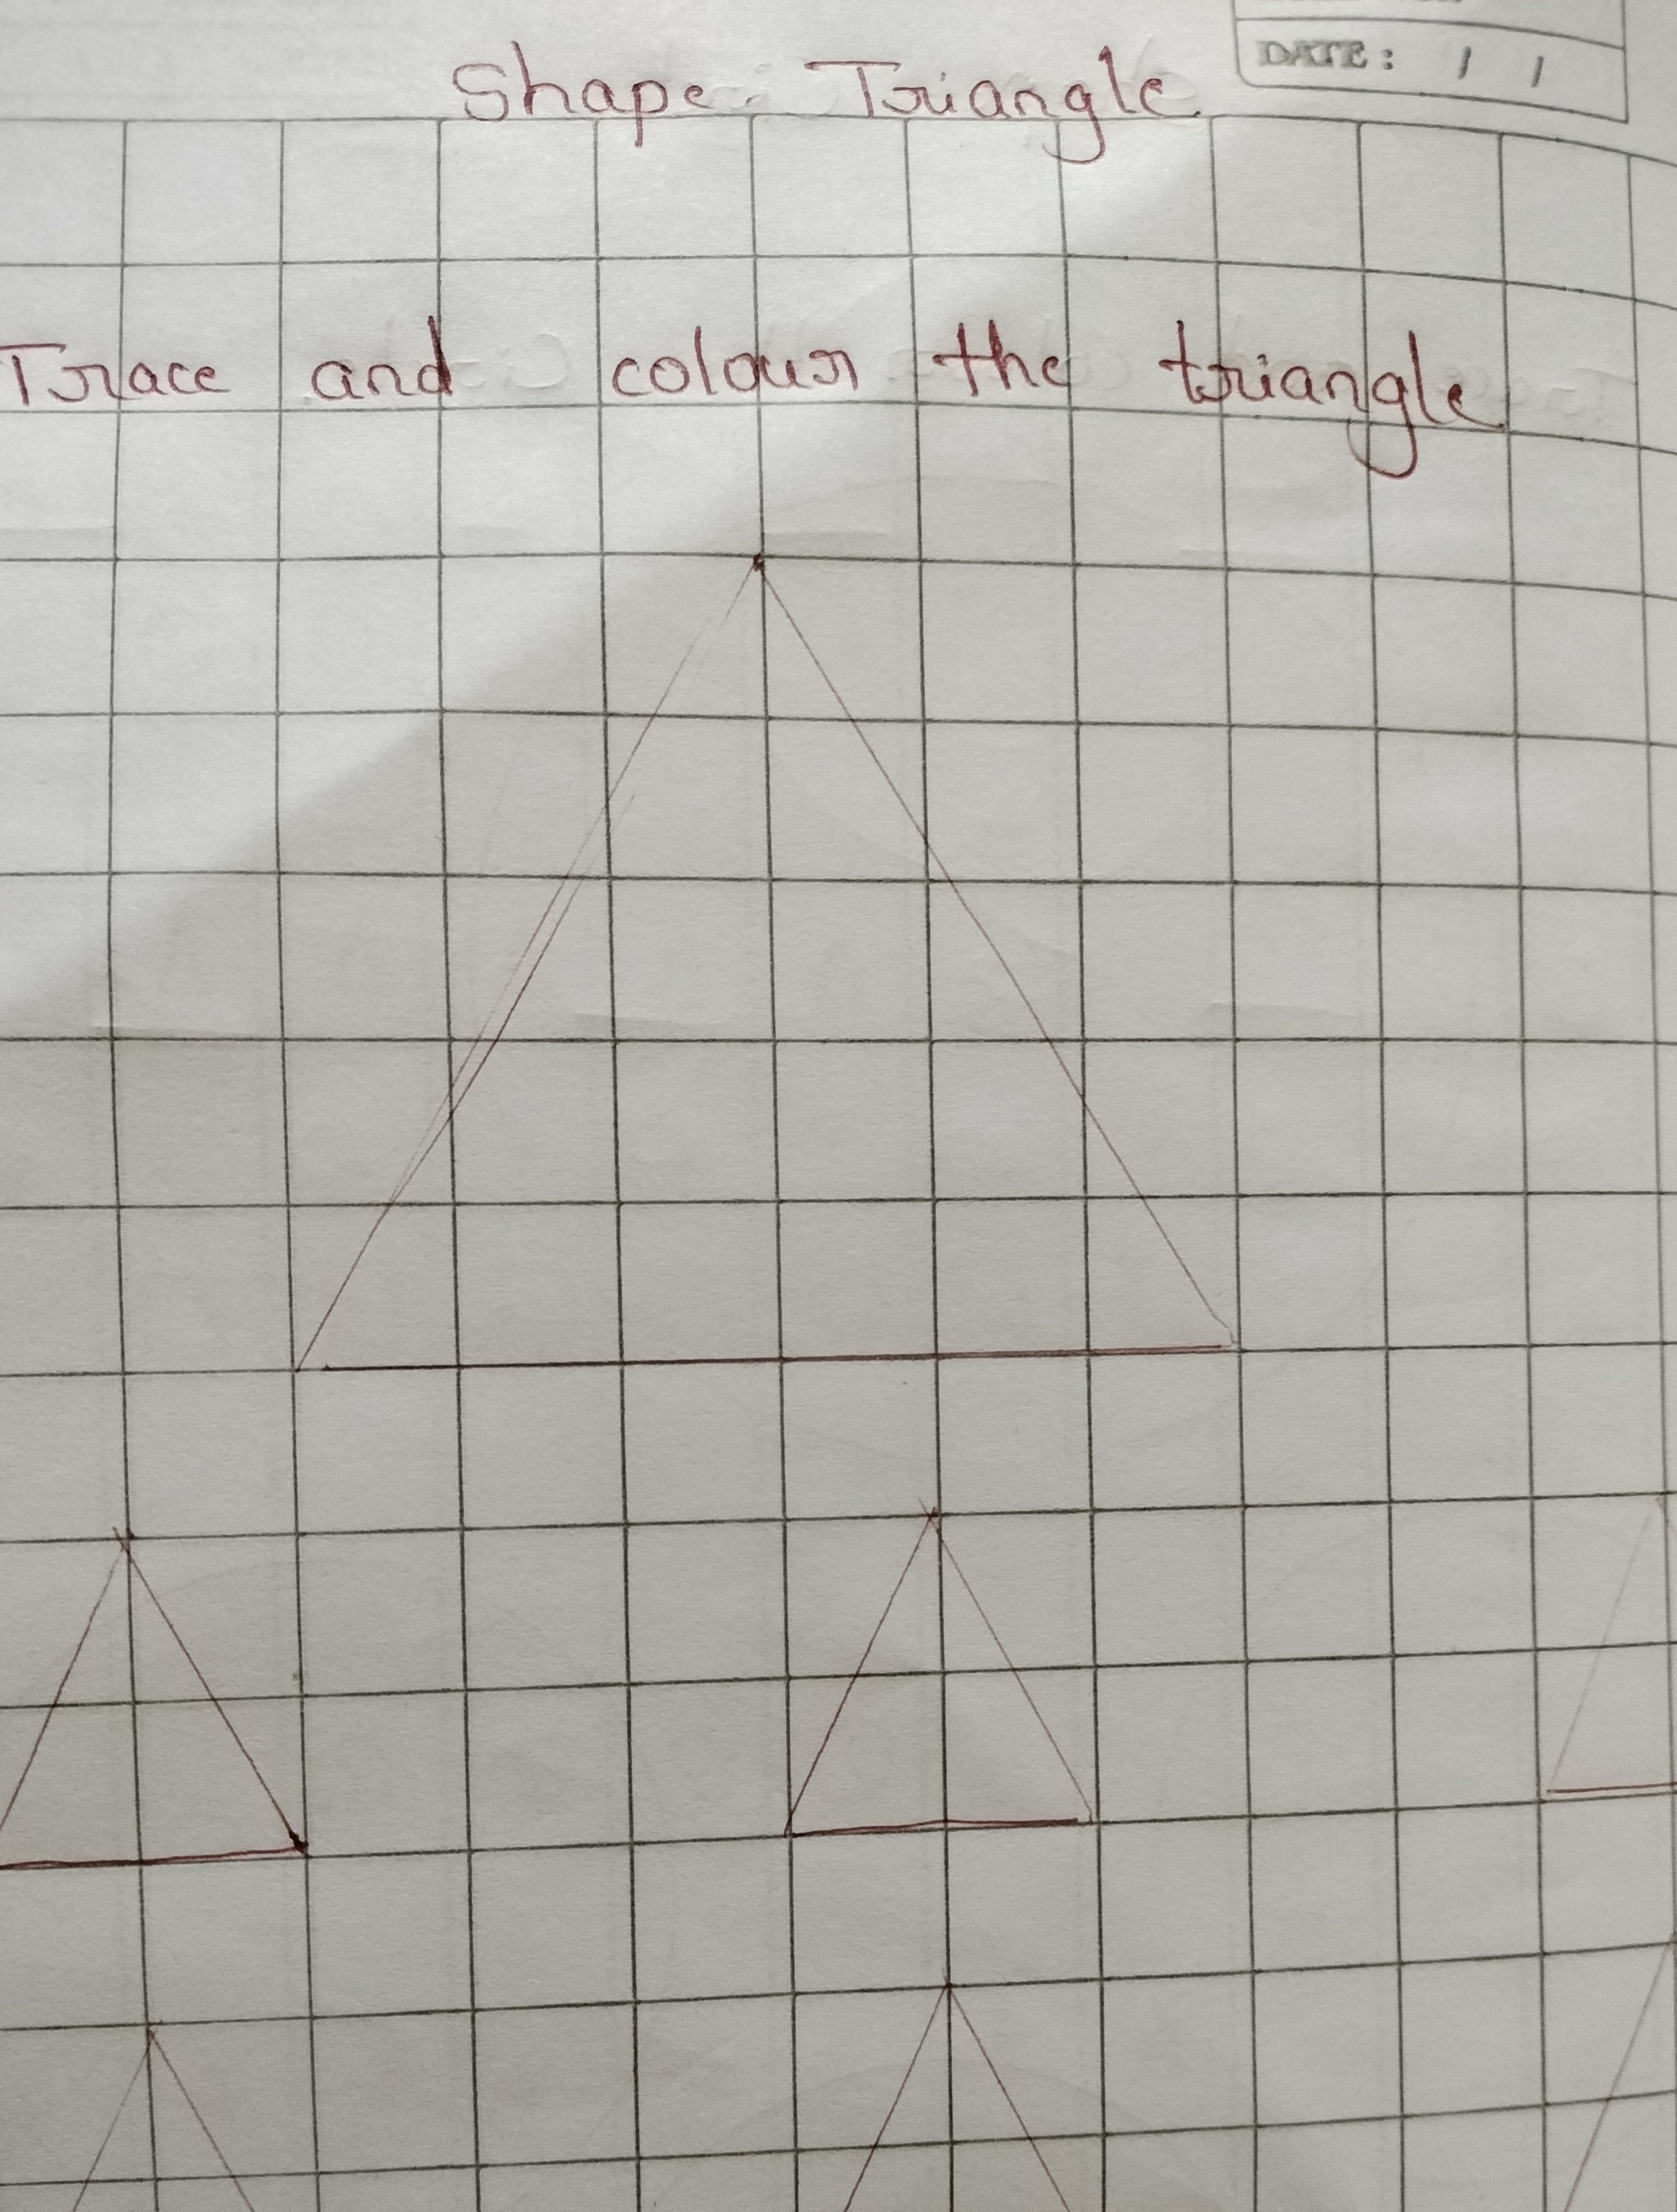 DATE: / /
Shape: Triangle
Trace and colour the triangle